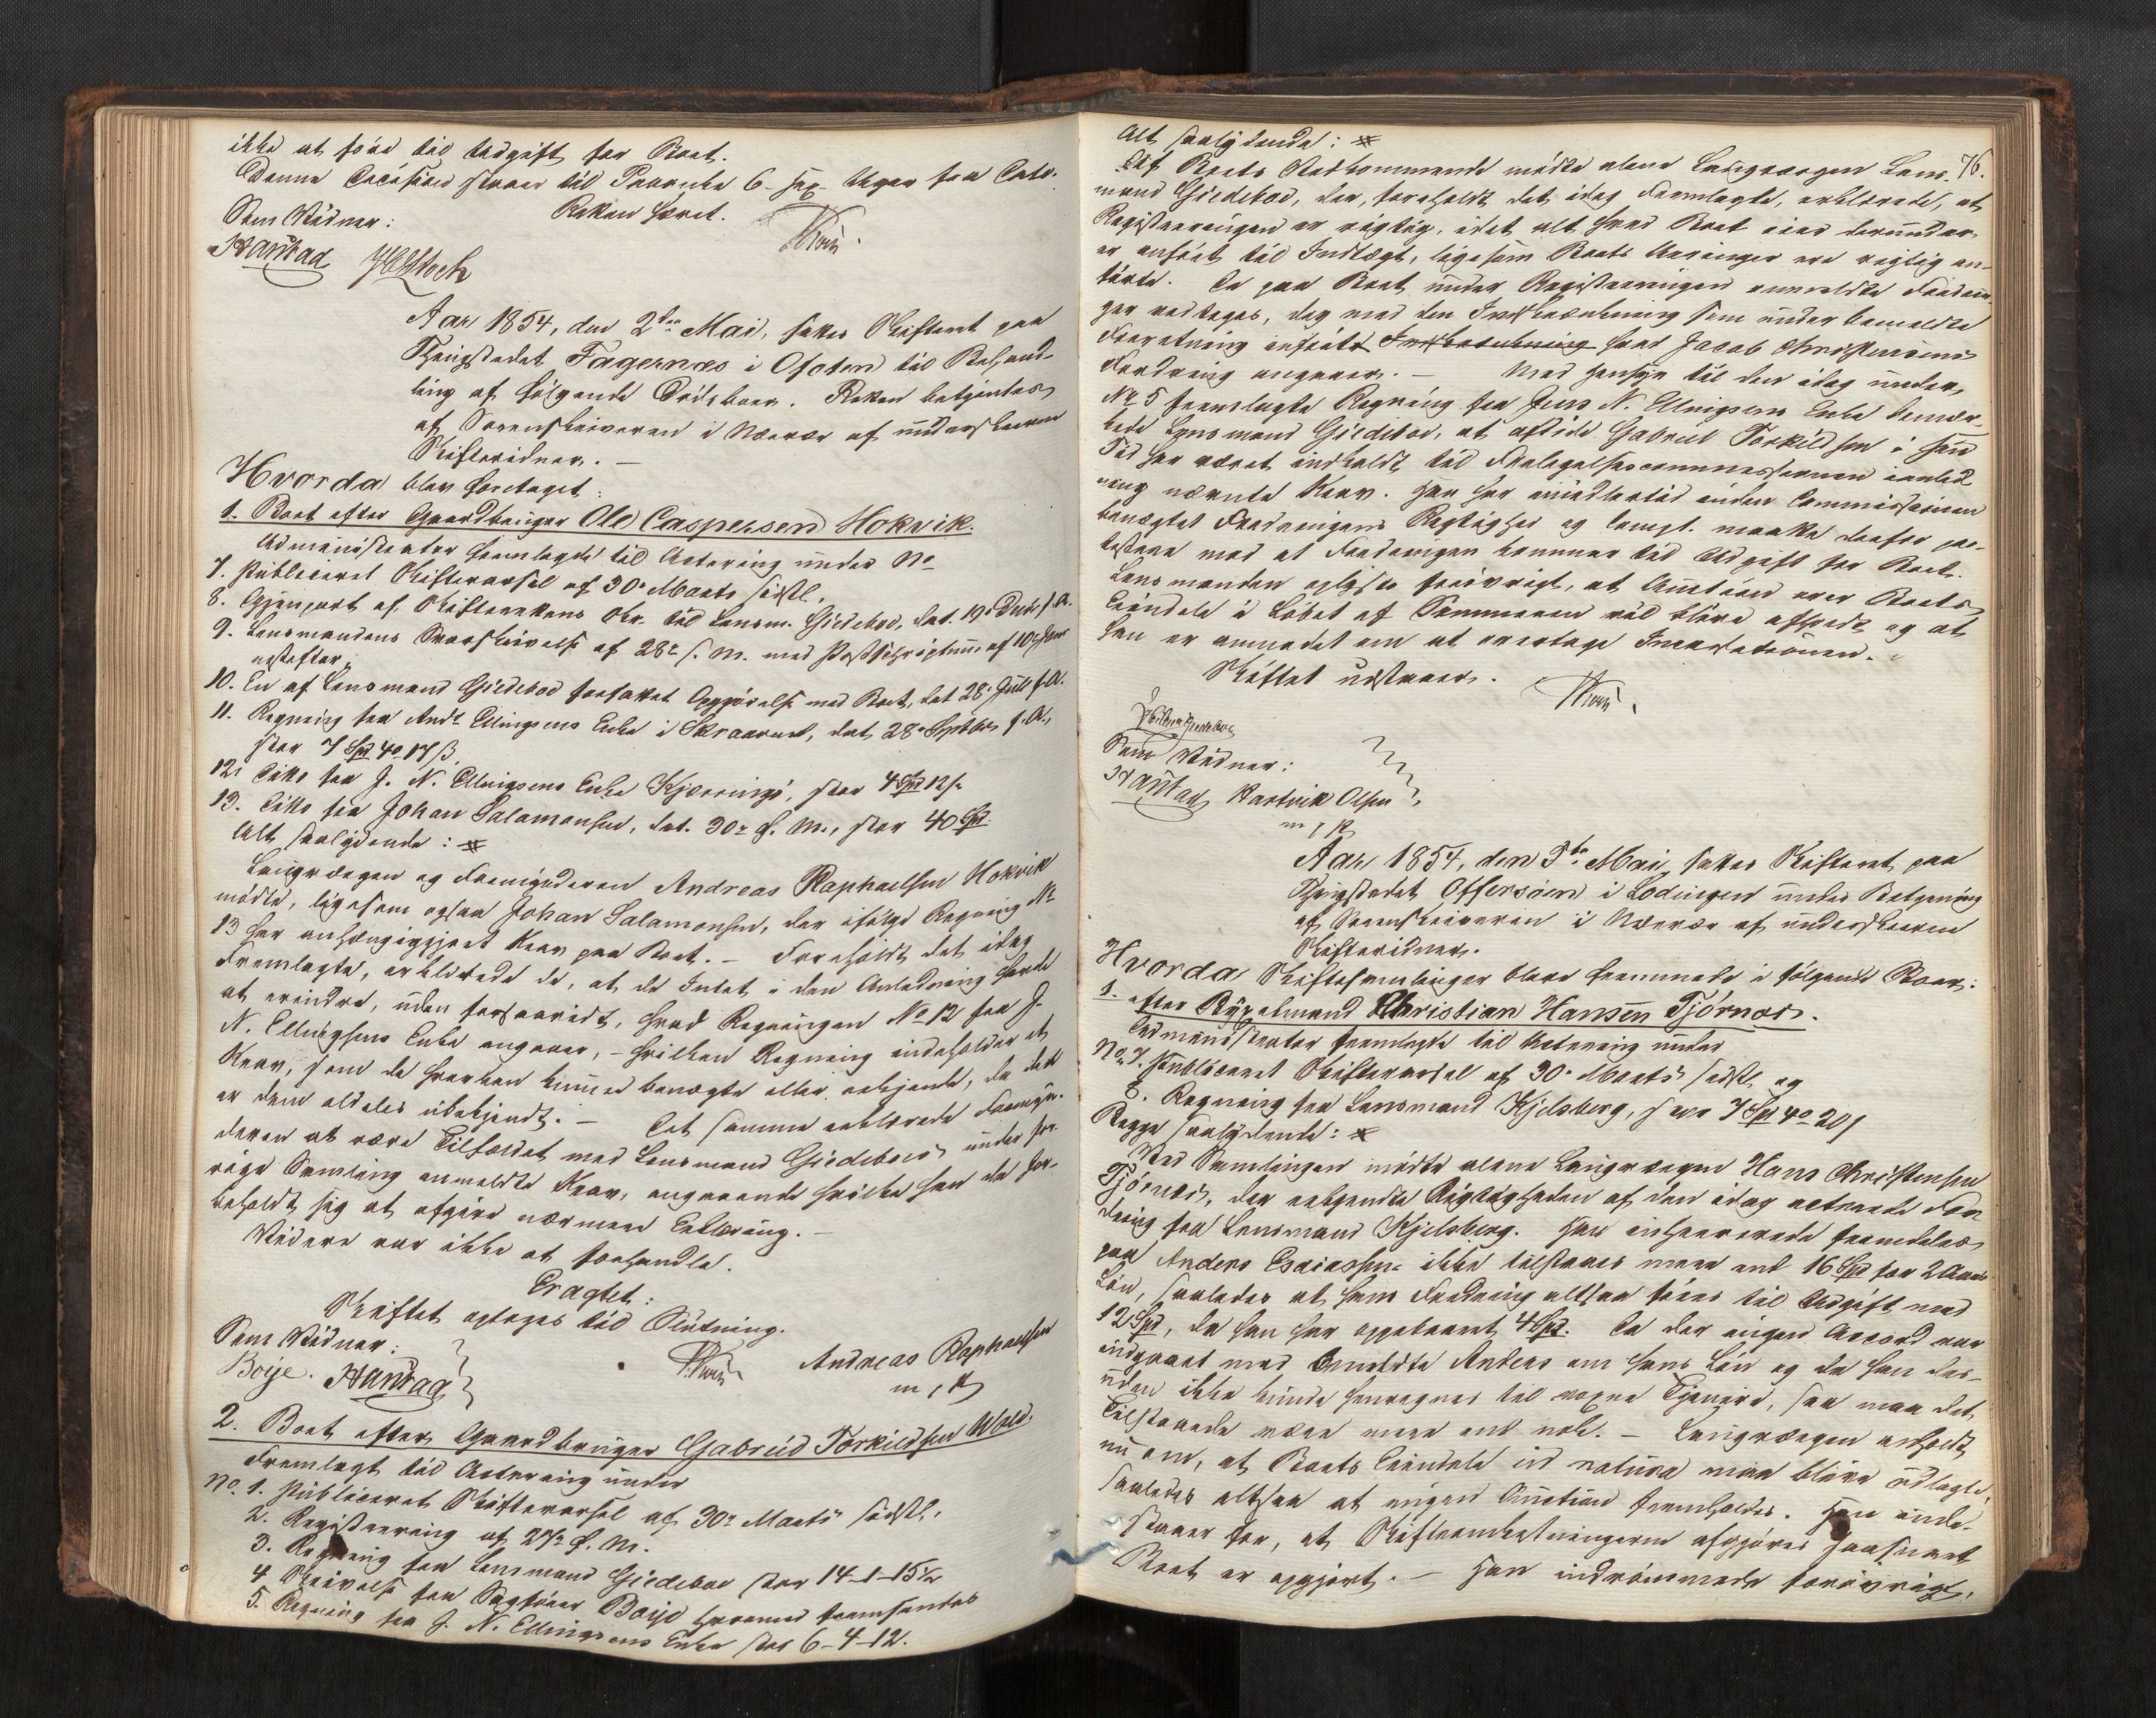 ikke at före til Udgift for Boet.
Denne Decision staaer til Paaanke 6 - sex - Uger fra Dato.
Retten hævet.
Som Vidner:
Harstad JHStoch
Aar 1854, den 2den Mai, sattes Skifteret paa
Thingstedet Fagernæs i Ofoten til Behand-
ling af fölgende Dödsboer. Retten betjentes
af Sorenskriveren i Nærvær af underskrevne
Skiftevidner. –
Hvorda blev foretaget:
1. Boet efter Gaardbruger Ole Caspersen Hokvik.
Administrator fremlagde til Actering under No
7. Publiceret Skiftevarsel af 30te Marts sidstl.
8. Gjenpart af Skifterettens Skr. til Lensm. Giedeboe, dat. 19de Decbr f. A.
9. Lensmandens Svarskrivelse af 28de s. M. med Postscriptum af 10de Janr
nestefter.
10. En af Lensmand Giedeboe forfattet Opgjörelse med Boet, dat 28de Juli f. A.
11. Regning fra Andr Ellingsens Enke i Skraaven, dat 28de Septbr f. A.,
stor 7 Spd 4o 17 ß.
12. Ditto fra J. N. Ellingsens Enke Kjerringö, stor 4 Spd 12 ß.
13. Ditto fra Johan Salamonsen, dat. 30te f. M., stor 40 Spd.
Alt saalydende: #
Laugværgen og Formynderen Andreas Raphaelsen Hokvik
mödte, ligesom ogsaa Johan Salamonsen, der ifölge Regning No
13 har anhængiggjort Krav paa Boet. – Foreholdt det idag
Fremlagte, erklærede de, at de Intet i den Anledning havde
at erindre, uden forsaavidt, hvad Regningen No 12 fra J.
N. Ellingsens Enke angaaer, – hvilken Regning indeholder et
Krav, som de hverken kunne benægte eller erkjende, da det
er dem aldeles ubekjendt. – Det samme erklærede Formyn-
deren at være Tilfældet med Lensmand Giedeboes under for-
rige Samling anmeldte Krav, angaaende hvilke han da for-
beholdt sig at afgive nærmere Erklæring. –
Videre var ikke at forhandle.
Eragtet:
Skiftet optages til Slutning.
Som Vidner:
Boije. Harstad
Andreas Raphaelsen
m. p.
2. Boet efter Gaardbruger Gabriel Torkildsen Wold.
Fremlagt til Actering under
No. 1. Publiceret Skiftevarsel af 30te Marts sidstl.
2. Registrering af 27de f. M.
3. Regning fra Lensmand Giedeboe stor 14-1-15½
4 Skrivelse fra Sagförer Boije hvormed fremsendes
5. Regning fra J. N. Ellingsens Enke stor 6-4-12.
76.
Alt saalydende: #
Af Boets Vedkommende mödte alene Laugværgen Lens-
mand Giedeboe, der, foreholdt det idag Fremlagte, erklærede, at
Registreringen er rigtig, idet alt hvad Boet eier derunder
er anfört til Indtægt, ligesom Boets Aaringer ere rigtig an-
förte. De paa Boet under Registreringen anmeldte Fordrin-
ger vedtages, dog med den Indskrænkning som under bemeldte
Forretning anfört Indskrænkning hvad Jacob Christensens
Fordring angaaer. – Med Hensyn til den idag under
No 5 fremlagte Regning fra Jens N. Ellingsens Enke bemær-
kede Lensmand Giedeboe, at afdöde Gabriel Torkildsen i sin
Tid har været indkaldt til Forligelsescommissionen i anled-
ning nævnte Krav. Han har imidlertid inden Commissionen
benægtet Fordringens Rigtighed og Compt. maatte derfor pro-
testere mod at Fordringen kommer til Udgift for Boet.
Lensmanden oplyste forövrigt, at Auction over Boets
Eiendele i Löbet af Sommeren vil blive afholdt og at
han er anmodet om at overtage Incassationen.
Skiftet udstaaer.
Som Vidner:
Harstad Hartvik Olsen
m. p.
Aar 1854, den 5te Mai, sattes Skifteret paa
Thingstedet Offersöen i Lödingen under Betjening
af Sorenskriveren i Nærvær af underskrevne
Skiftevidner.
Hvorda Skiftesamlinger bleve fremmede i fölgende Boer:
1. efter Rydselmand Christian Hansen Tjörnæs.
Administrator fremlagde til Actering under
No 7. Publiceret Skiftevarsel af 30te Marts sidstl. og
8. Regning fra Lensmand Kjelsberg, stor 7 Spd 4o 20 ß
Begge saalydende: #
Ved Samlingen mödte alene Laugværgen Hans Christensen
Tjörnæs, der erkjendte Rigtigheden af den idag acterede For-
dring fra Lensmand Kjelsberg. Han indherererede fremdeles
paa Anders Esaiassen ikke tilstaaes mere end 16 Spd for 2 Aars
Lön, saaledes at hans Fordring altsaa föres til Udgift med
12 Spd, da han har oppebaaret 4 Spd. Da der ingen Accord var
indgaaet med bemeldte Anders om hans Lön og da han des-
uden ikke kunde henregnes til voxne Tjenere, saa maa det
Tilstaaede være mere end nok. – Laugværgen anholdt
nu om, at Boets Eiendele in natura maa blive udlagte,
saaledes altsaa at ingen Auction fremholdes. Han inde-
staaer for, at Skifteomkostningerne afgjöres saasnart
Boet er opgjort. – Han indrömmede forövrigt,